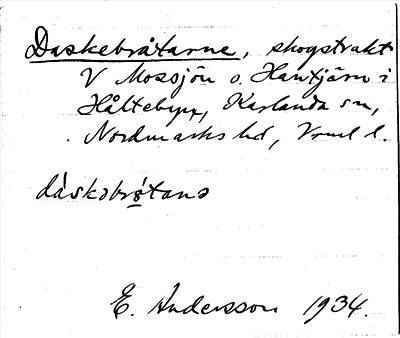 Daskebråtarne, skogstrakt
V Mossjön o. Hantjärn i
Håltebyn, Karlanda sn,
Nordmarks hd, Vrml l.
dáskəbrøtanə
E. Andersson 1934.